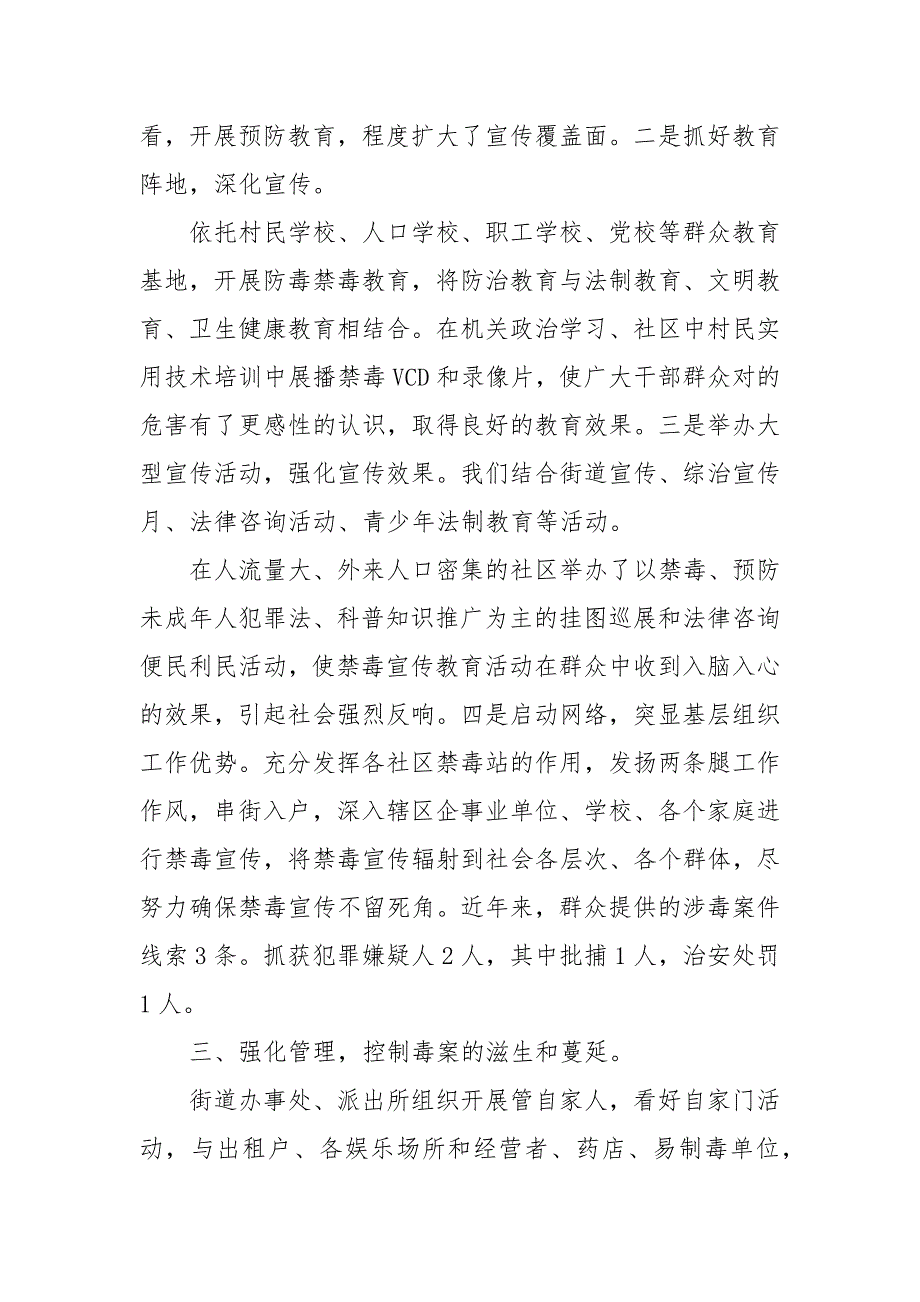 看，开展预防教育，程度扩大了宣传覆盖面。二是抓好教育
阵地，深化宣传。
依托村民学校、人口学校、职工学校、党校等群众教育
基地，开展防毒禁毒教育，将防治教育与法制教育、文明教
育、卫生健康教育相结合。在机关政治学习、社区中村民实
用技术培训中展播禁毒 VCD 和录像片，使广大干部群众对的
危害有了更感性的认识，取得良好的教育效果。三是举办大
型宣传活动，强化宣传效果。我们结合街道宣传、综治宣传
月、法律咨询活动、青少年法制教育等活动。
在人流量大、外来人口密集的社区举办了以禁毒、预防
未成年人犯罪法、科普知识推广为主的挂图巡展和法律咨询
便民利民活动，使禁毒宣传教育活动在群众中收到入脑入心
的效果，引起社会强烈反响。四是启动网络，突显基层组织
工作优势。充分发挥各社区禁毒站的作用，发扬两条腿工作
作风，串街入户，深入辖区企事业单位、学校、各个家庭进
行禁毒宣传，将禁毒宣传辐射到社会各层次、各个群体，尽
努力确保禁毒宣传不留死角。近年来，群众提供的涉毒案件
线索 3 条。抓获犯罪嫌疑人 2 人，其中批捕 1 人，治安处罚
1 人。
三、强化管理，控制毒案的滋生和蔓延。
街道办事处、派出所组织开展管自家人，看好自家门活
动，与出租户、各娱乐场所和经营者、药店、易制毒单位，